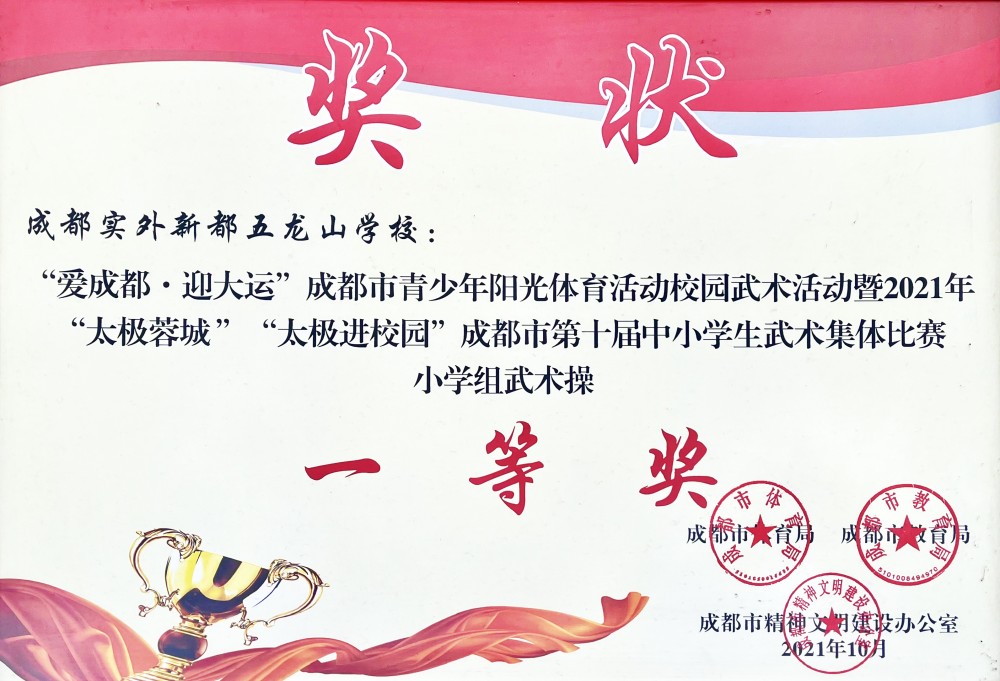 奖状
成都实外新都五龙山学校：
“爱成都·迎大运”成都市青少年阳光体育活动校园武术活动暨2021年
“太极蓉城”“太极进校园”成都市第十届中小学生武术集体比赛
小学组武术操
一等奖
成都市体育局 成都市教育局
成都市体育局
成都市教育局
5101008494970
成都市精神文明建设办公室
2021年10月